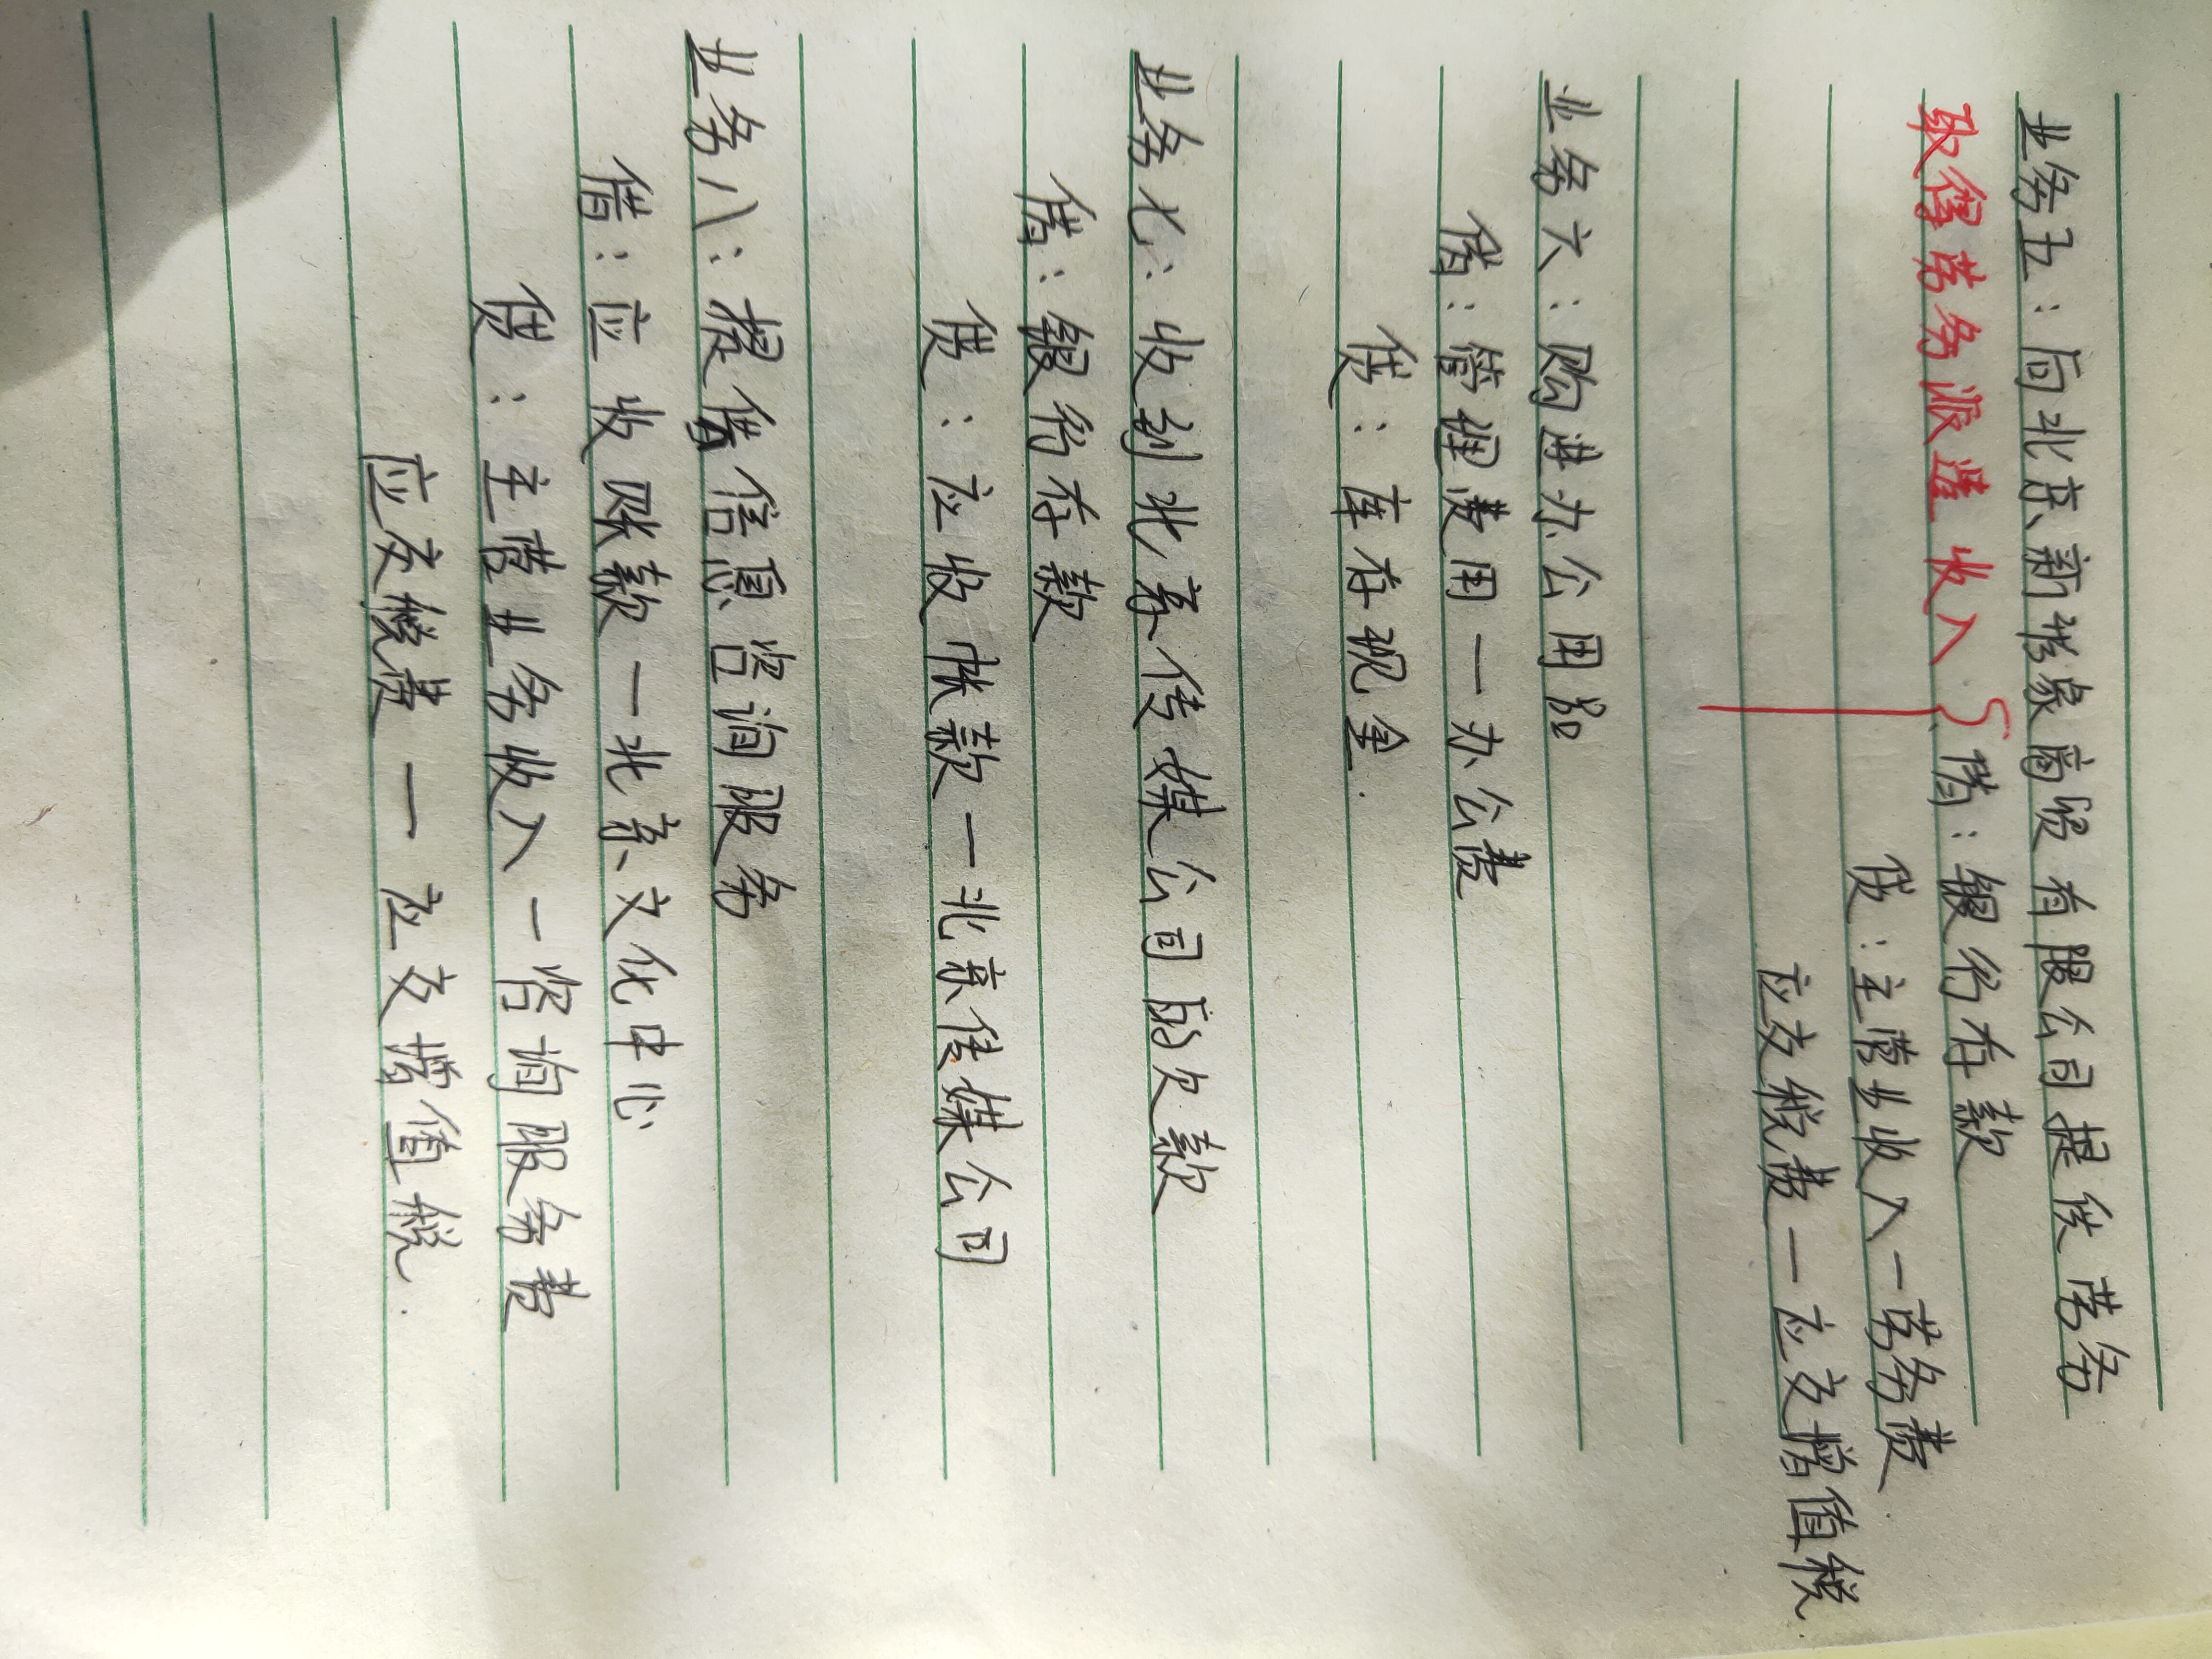 业务五：向北京新形象商贸有限公司提供劳务
取得劳务派遣收入 借：银行存款
贷：主营业收入一劳务费
应交税费一应交增值税
业务六：购进办公用品
借：管理费用一办公费
贷：库存现金.
业务七：收到北京传媒公司的欠款
借：银行存款
贷：应收帐款一北京传媒公司
业务八：提供信息咨询服务
借：应收账款一北京文化中心
贷：主营业务收入一咨询服务费
应交税费一应交增值税.